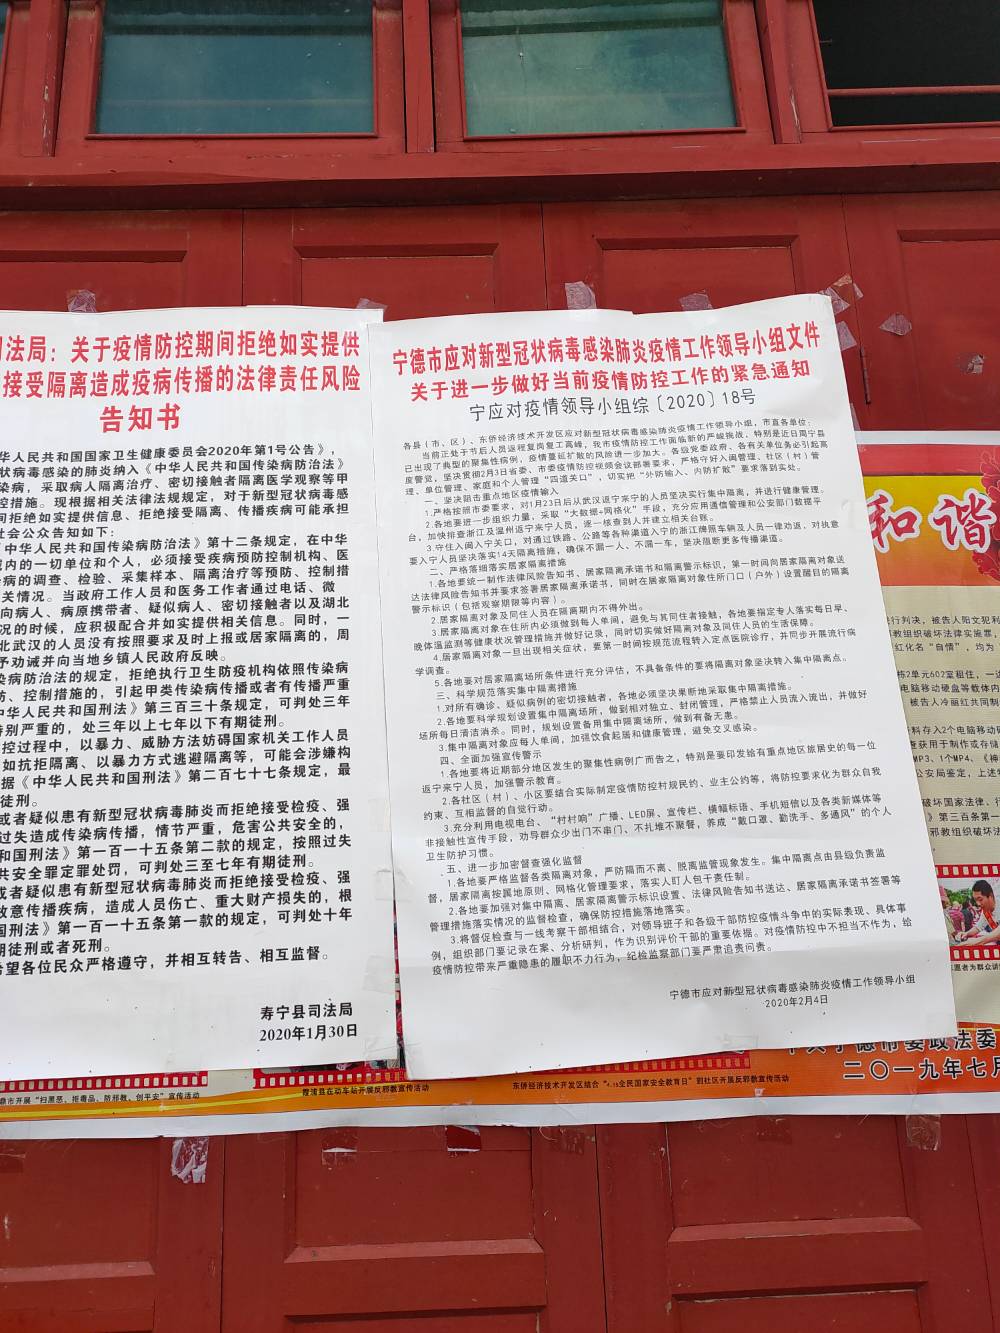 司法局：关于疫情防控期间拒绝如实提供
接受隔离造成疫病传播的法律责任风险
告知书
华人民共和国国家卫生健康委员会2020年第1号公告》，
状病毒感染的肺炎纳入《中华人民共和国传染病防治法》
染病，采取病人隔离治疗、密切接触者隔离医学观察等甲
控措施。现根据相关法律法规规定，对于新型冠状病毒感
间拒绝如实提供信息、拒绝接受隔离、传播疾病可能承担
社会公众告知如下：
《中华人民共和国传染病防治法》第十二条规定，在中华
域内的一切单位和个人，必须接受疾病预防控制机构、医
染病的调查、检验、采集样本、隔离治疗等预防、控制措
关情况。当政府工作人员和医务工作者通过电话、微
向病人、病原携带者、疑似病人、密切接触者以及湖北
况的时候，应积极配合并如实提供相关信息。同时，一
北武汉的人员没有按照要求及时上报或者居家隔离的，周
予劝诫并向当地乡镇人民政府反映。
染病防治法的规定，拒绝执行卫生防疫机构依照传染病
防、控制措施的，引起甲类传染病传播或者有传播严重
中华人民共和国刑法》第三百三十条规定，可判处三年
特别严重的，处三年以上七年以下有期徒刑。
控过程中，以暴力、威胁方法妨碍国家机关工作人员
如抗拒隔离、以暴力方式逃避隔离等，可能会涉嫌构
据《中华人民共和国刑法》第二百七十七条规定，最
徒刑。
或者疑似患有新型冠状病毒肺炎而拒绝接受检疫、强
过失造成传染病传播，情节严重，危害公共安全的，
和国刑法》第一百一十五条第二款的规定，按照过失
共安全罪定罪处罚，可判处三至七年有期徒刑。
或者疑似患有新型冠状病毒肺炎而拒绝接受检疫、强
故意传播疾病，造成人员伤亡、重大财产损失的，根
国刑法》第一百一十五条第一款的规定，可判处十年
期徒刑或者死刑。
希望各位民众严格遵守，并相互转告、相互监督。
寿宁县司法局
2020年1月30日
宁德市应对新型冠状病毒感染肺炎疫情工作领导小组文件
关于进一步做好当前疫情防控工作的紧急通知
宁应对疫情领导小组综〔2020〕18号
各县（市、区）、东侨经济技术开发区应对新型冠状病毒感染肺炎疫情工作领导小组，市直各单位：
当前正处于节后人员返程复岗复工高峰，我市疫情防控工作面临新的严峻挑战，特别是近日周宁县
已出现了典型的聚集性病例，疫情蔓延扩散的风险进一步加大。各级党委政府、各有关单位务必引起高
度警觉，坚决贯彻2月3日省委、市委疫情防控视频会议部署要求，严格守好入闽管理、社区（村）管
理、单位管理、家庭和个人管理“四道关口”，切实把“外防输入、内防扩散”要求落到实处。
一、坚决阻击重点地区疫情输入
1.严格按照市委要求，对1月23日后从武汉返宁来宁的人员坚决实行集中隔离，并进行健康管理。
2.各地要进一步组织力量，采取“大数据+网格化”手段，充分应用通信管理和公安部门数据平
台，加快排查浙江及温州返宁来宁人员，逐一核查到人并建立相关台账。
3.守住入闽入宁关口，对通过铁路、公路等各种渠道入宁的浙江牌照车辆及人员一律劝返，对执意
要入宁人员坚决落实14天隔离措施，确保不漏一人、不漏一车，坚决阻断更多传播渠道。
二、严格落细落实居家隔离措施
1.各地要统一制作法律风险告知书、居家隔离承诺书和隔离警示标识，第一时间向居家隔离对象送
达法律风险告知书并要求签署居家隔离承诺书，同时在居家隔离对象住所门口（户外）设置醒目的隔离
警示标识（包括观察期限等内容）。
2.居家隔离对象及同住人员在隔离期内不得外出。
3.居家隔离对象在住所内必须做到每人单间，避免与其同住者接触，各地要指定专人落实每日早、
晚体温监测等健康状况管理措施并做好记录，同时切实做好隔离对象及同住人员的生活保障。
4.居家隔离对象一旦出现相关症状，要第一时间按规范流程转入定点医院诊疗，并同步开展流行病
学调查。
5.各地要对居家隔离场所条件进行充分评估，不具备条件的要将隔离对象坚决转入集中隔离点。
三、科学规范落实集中隔离措施
1.对所有确诊、疑似病例的密切接触者，各地必须坚决果断地采取集中隔离措施。
2.各地要科学规划设置集中隔离场所，做到相对独立、封闭管理，严格禁止人员流入流出，并做好
场所每日清洁消杀。同时，规划设置备用集中隔离场所，做到有备无患。
3.集中隔离对象应每人单间，加强饮食起居和健康管理，避免交叉感染。
四、全面加强宣传警示
1.各地要将近期部分地区发生的聚集性病例广而告之，特别是要印发给有重点地区旅居史的每一位
返宁来宁人员，加强警示教育。
2.各社区（村）、小区要结合实际制定疫情防控村规民约、业主公约等，将防控要求化为群众自我
约束、互相监督的自觉行动。
3.充分利用电视电台、“村村响”广播、LED屏、宣传栏、横幅标语、手机短信以及各类新媒体等
非接触性宣传手段，劝导群众少出门不串门、不扎堆不聚餐，养成“戴口罩、勤洗手、多通风”的个人
卫生防护习惯。
五、进一步加密督查强化监督
1.各地要严格监督各类隔离对象，严防隔而不离、脱离监管现象发生。集中隔离点由县级负责监
督，居家隔离按属地原则、网格化管理要求，落实人盯人包干责任制。
2.各地要加强对集中隔离、居家隔离警示标识设置、法律风险告知书送达、居家隔离承诺书签署等
管理措施落实情况的监督检查，确保防控措施落地落实。
3.将督促检查与一线考察干部相结合，对领导班子和各级干部防控疫情斗争中的实际表现、具体事
例，组织部门要记录在案、分析研判，作为识别评价干部的重要依据。对疫情防控中不担当不作为，给
疫情防控带来严重隐患的履职不力行为，纪检监察部门要严肃追责问责。
宁德市应对新型冠状病毒感染肺炎疫情工作领导小组
2020年2月4日
和谐
行判决，被告人阳文犯利
教组织破坏法律实施罪，
红化名“自情”，均为
栋2单元602室租住，一边
电脑移动硬盘等载体内
被告人冷丽红共同制
料存入2个电脑移动硬
查获用于制作或存储
MP3、1个MP4、《神
公安局鉴定，上述
破坏国家法律、行
》第三百条第一
邪教组织破坏
二〇一九年七月
鼎市开展“扫黑恶、拒毒品、防邪教、创平安”宣传活动
霞浦县在动车站开展反邪教宣传活动
东侨经济技术开发区结合“4.15全民国家安全教育日”到社区开展反邪教宣传活动